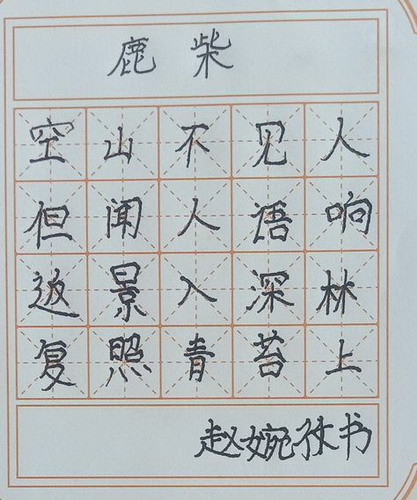 鹿柴
空山不见人
但闻人语响
返景入深林
复照青苔上
赵婉书